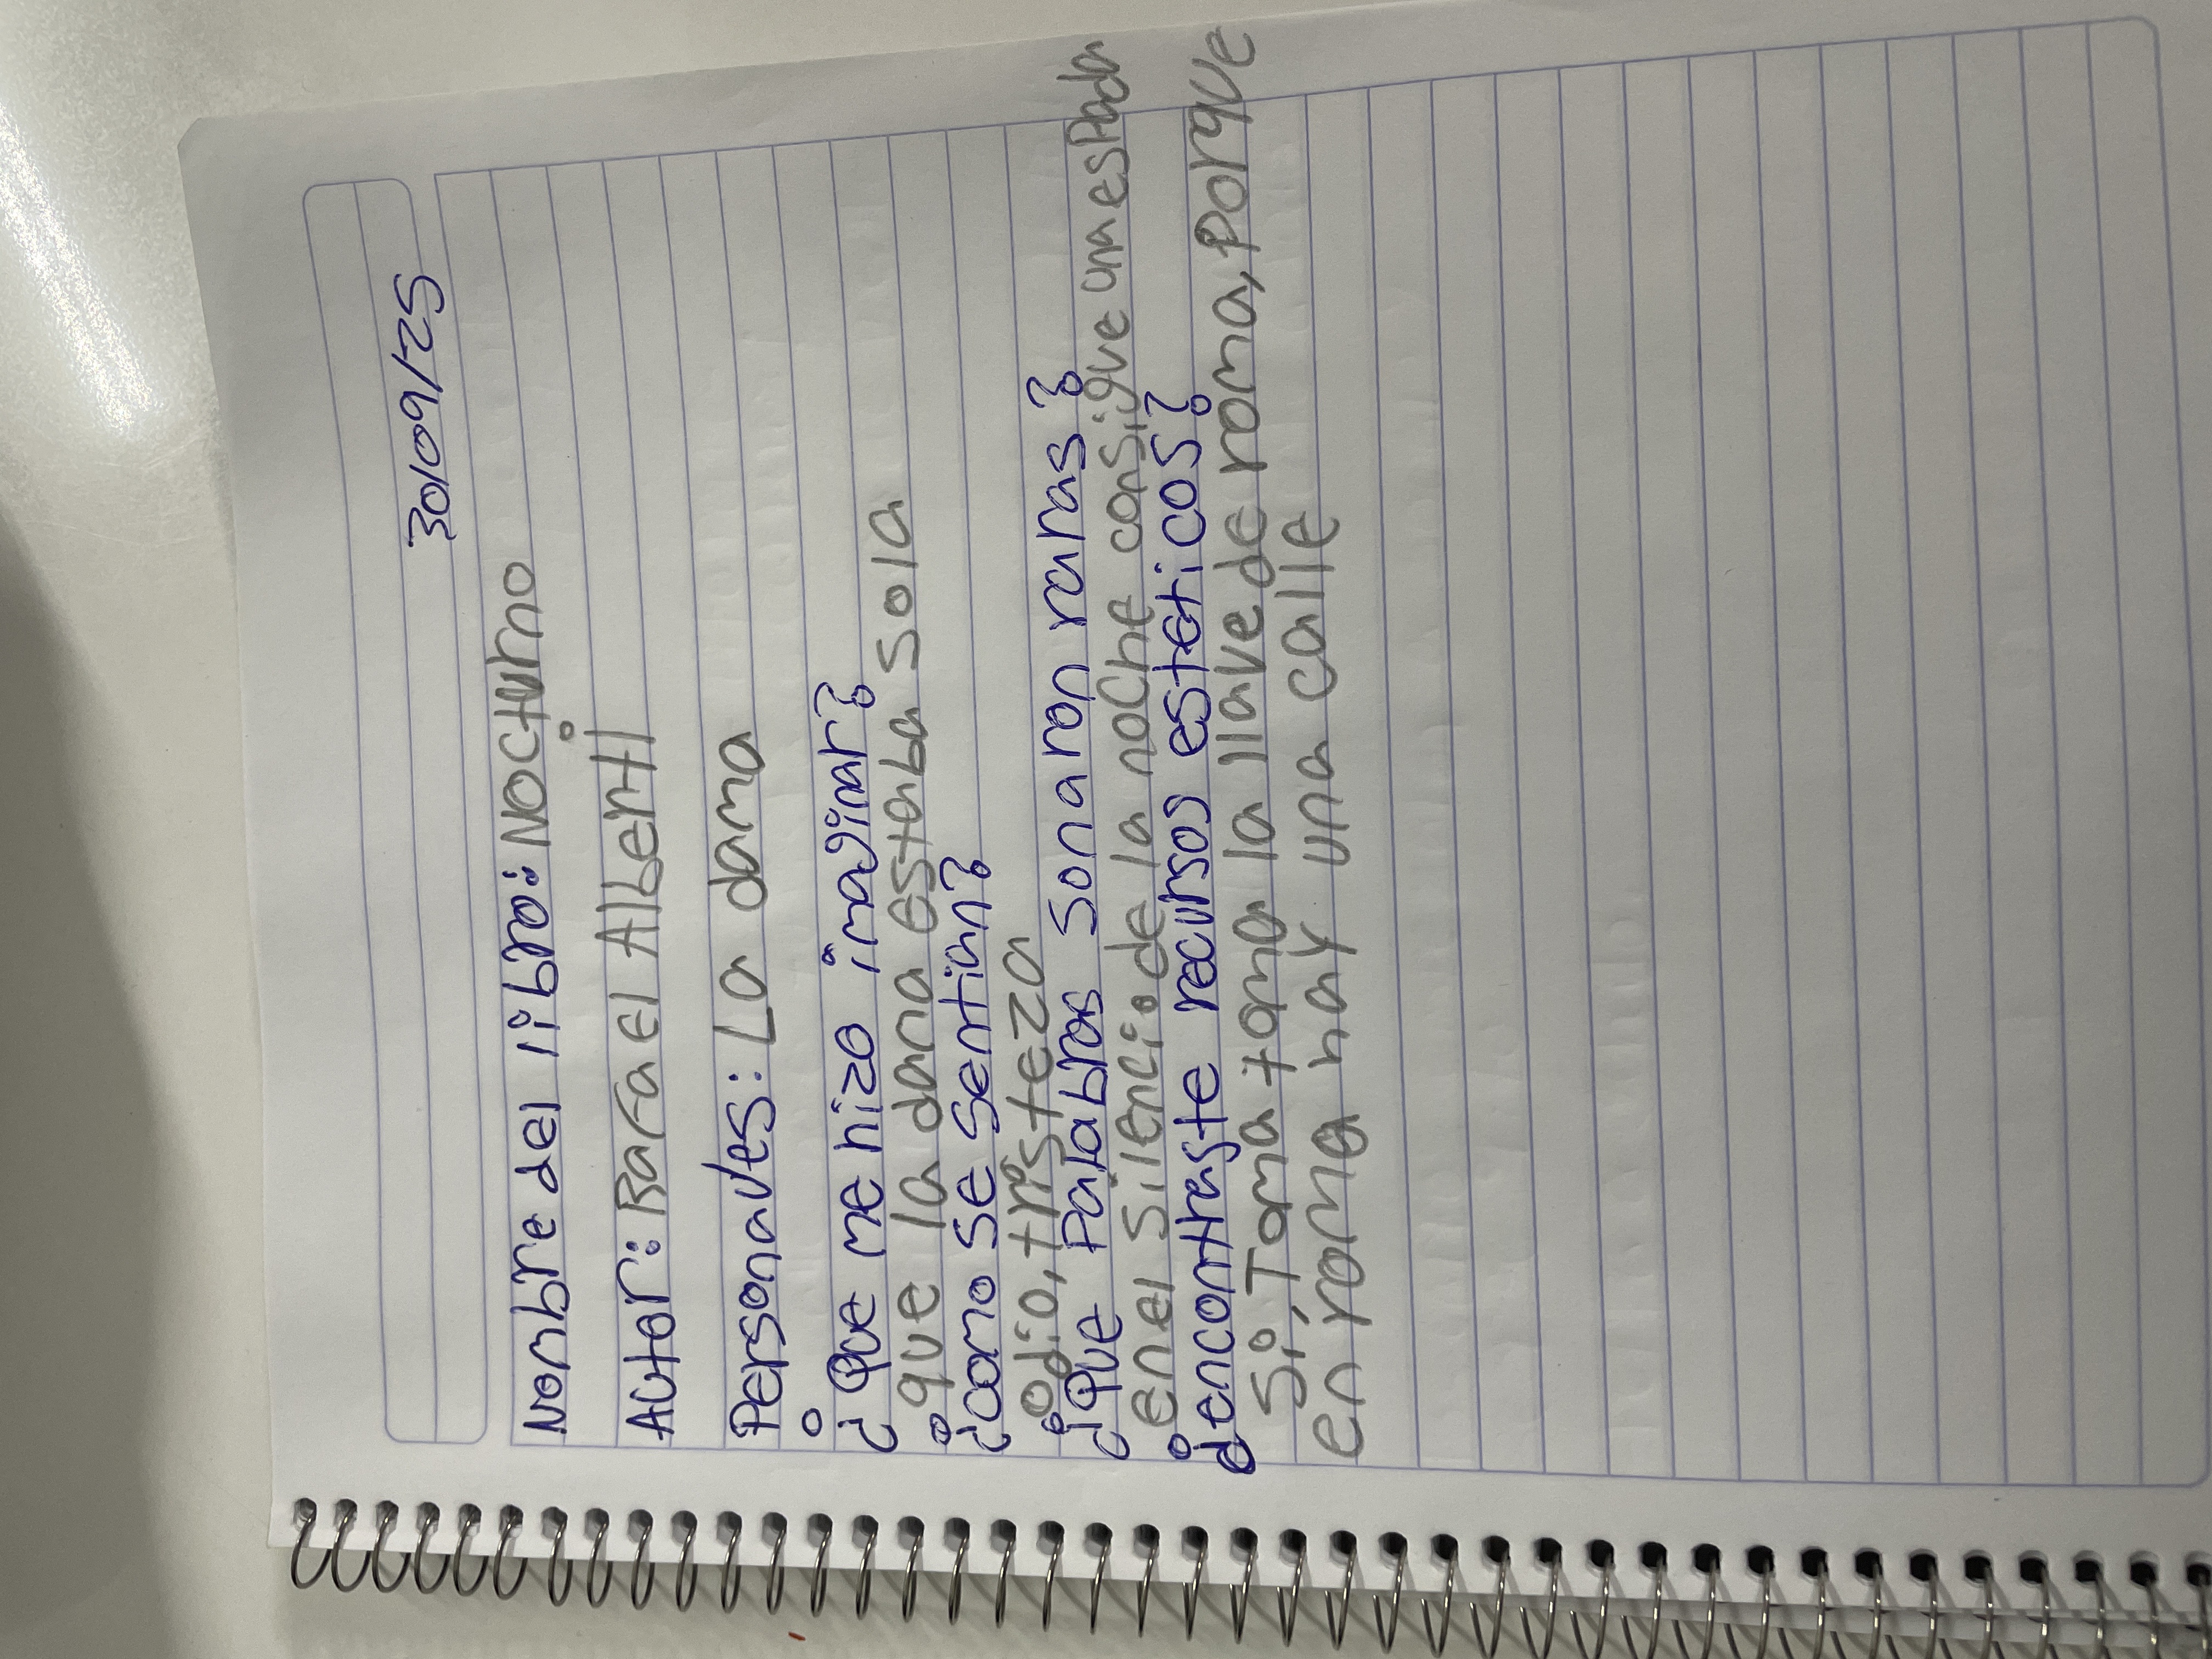 30/09/25
Nombre del libro: Nocturno
Autor: Rafael Alberti
Personaves: La dama
¿Que me hizo imaginar?
que la dama estaba sola
¿como se sentian?
odio, tristeza
¿Que Palabras sonaron raras?
en el silencio de la noche consigue una espada
¿encontraste recursos esteticos?
Si, Toma toma la llave de roma, porque
en roma hay una calle